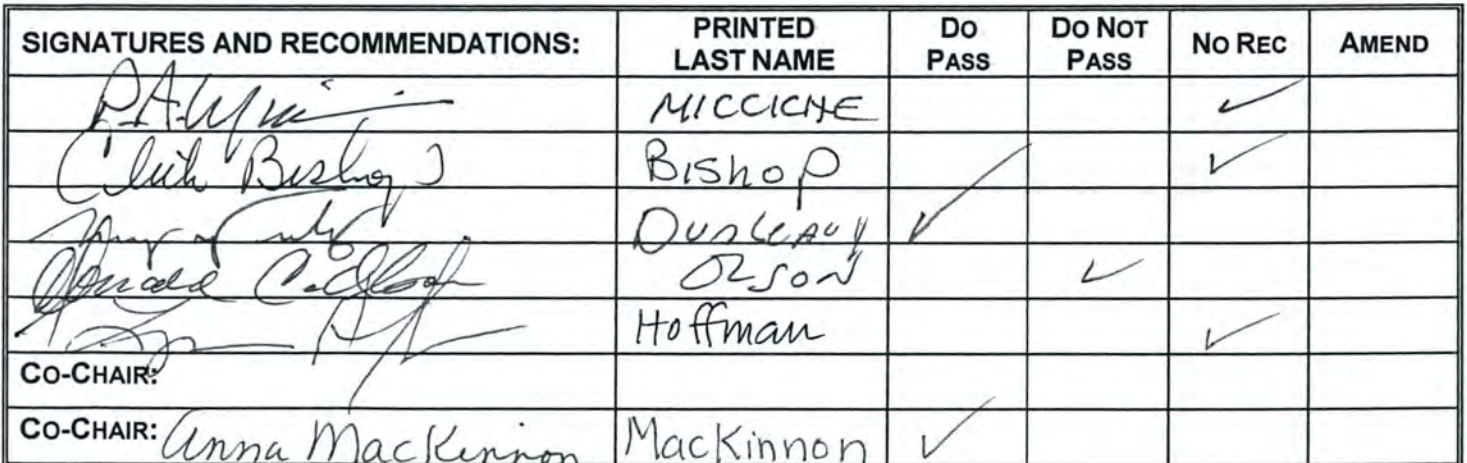 SIGNATURES AND RECOMMENDATIONS: PRINTED LAST NAME DO PASS DO NOT PASS NO REC AMEND
MICCICHE ✓
Click Bishop Bishop ✓
Dunleavy ✓
Donald C. Olson OLSON ✓
Hoffman ✓
CO-CHAIR:
CO-CHAIR: Anna MacKinnon MacKinnon ✓